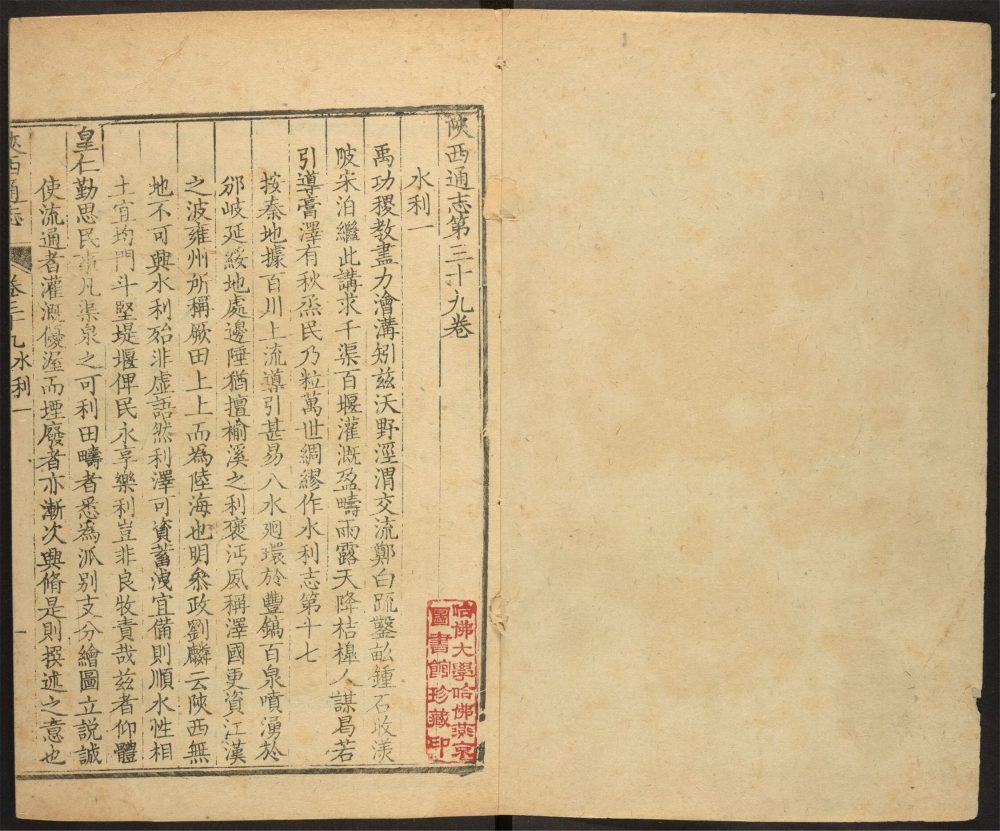 陝西通志第三十九卷
水利一
禹功稷教盡力溝矧茲沃野涇渭交流鄭白疏鑿畝鍾石收漾
陂宋泊繼此講求千渠百堰灌溉盈疇雨露天降桔槹人謀曷若
引導膏澤有秋烝民乃粒萬世綢繆作水利志第十七
按秦地據百川上流導引甚易八水廻環於豐鎬百泉噴湧於
邠岐延綏地處邊陲猶擅榆溪之利褒沔夙稱澤國更資江漢
之波雍州所稱厥田上上而為陸海也明叅政劉麟云陝西無
地不可興水利殆非虛語然利澤可資蓄洩宜備則順水性相
土宜均門斗堅堤堰俾民永享樂利豈非良牧責哉茲者仰體
皇仁勤思民事凡渠泉之可利田疇者悉為派別支分繪圖立說誠
使流通者灌溉優渥而堙廢者亦漸次興脩是則撰述之意也
陝西通志
卷三十九水利一
一
哈佛大學哈佛燕京
圖書館珍藏印